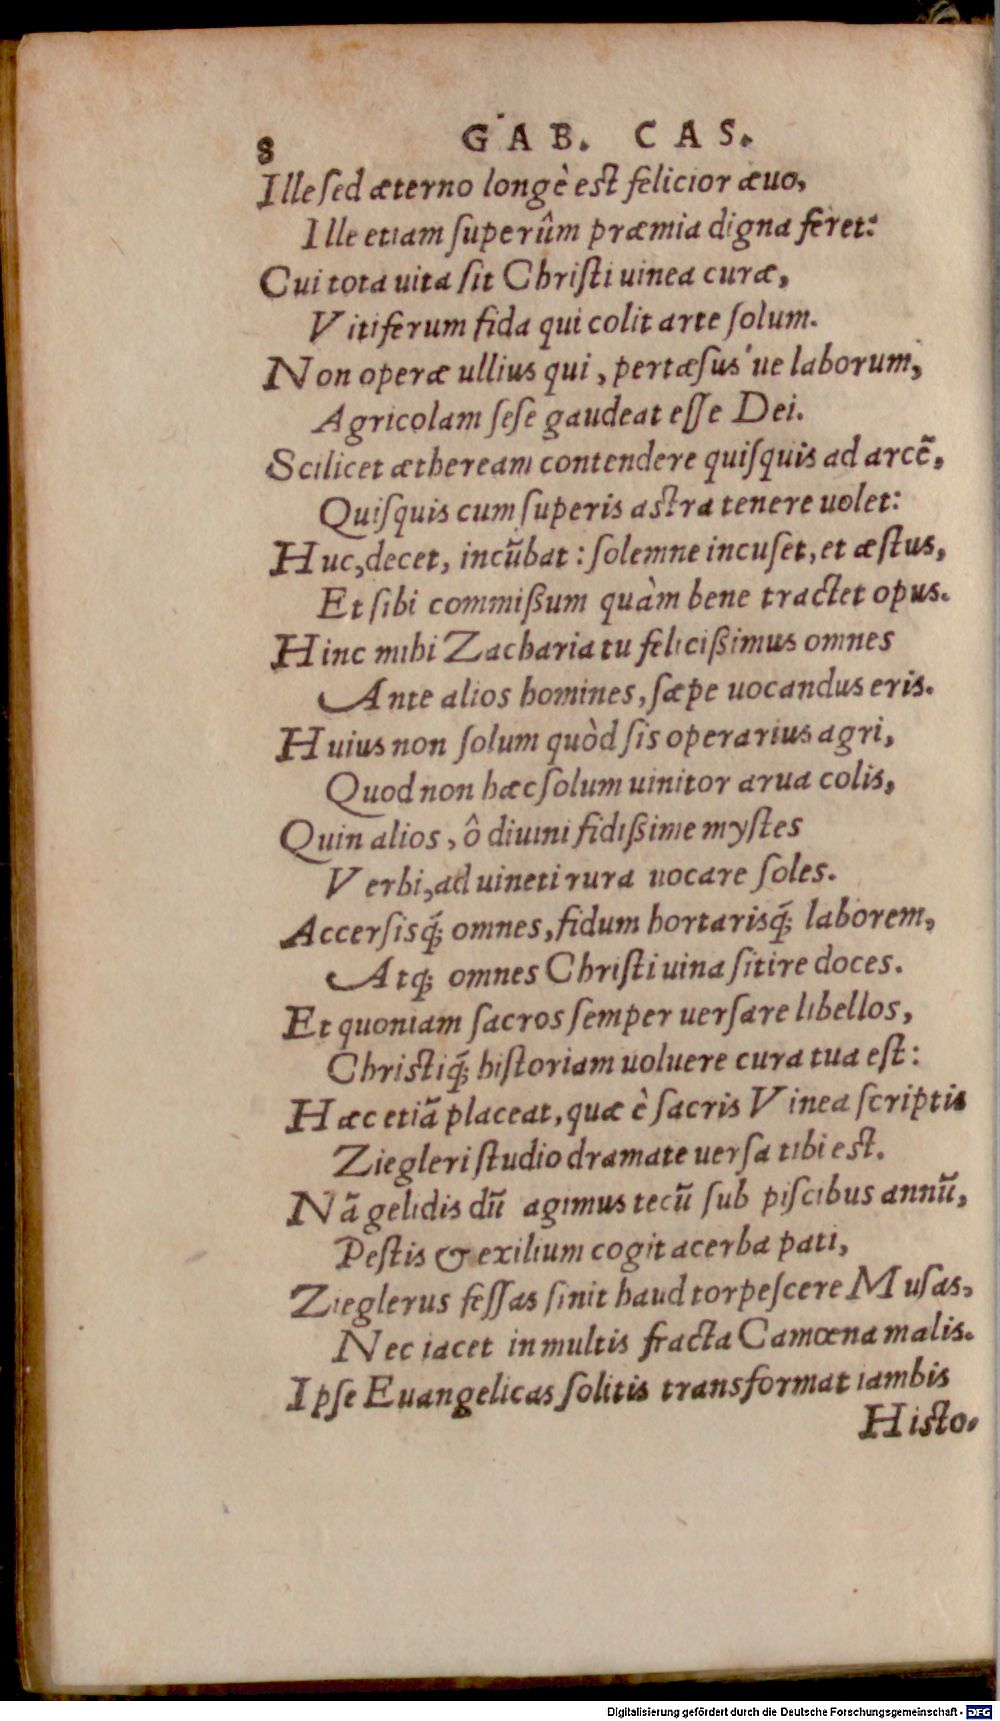 8 GAB. CAS.
Ille ſed æterno longè eſt felicior æuo,
Ille etiam ſuperûm præmia digna feret:
Cui tota uita ſit Chriſti uinea curæ,
Vitiferum fida qui colit arte ſolum.
Non operæ ullius qui, pertæſus'ue laborum,
Agricolam ſeſe gaudeat eſſe Dei.
Scilicet ætheream contendere quiſquis ad arcẽ,
Quiſquis cum ſuperis aſtra tenere uolet:
Huc, decet, incũbat: ſolemne incuſet, et æſtus,
Et ſibi commißum quàm bene tractet opus.
Hinc mihi Zacharia tu felicißimus omnes
Ante alios homines, ſæpe uocandus eris.
Huius non ſolum quòd ſis operarius agri,
Quod non hæc ſolum uinitor arua colis,
Quin alios, ô diuini fidißime myſtes
Verbi, ad uineti rura uocare ſoles.
Accerſisq́; omnes, fidum hortarisq́; laborem,
Atq; omnes Chriſti uina ſitire doces.
Et quoniam ſacros ſemper uerſare libellos,
Chriſtiq́; hiſtoriam uoluere cura tua eſt:
Hæc etiã placeat, quæ è ſacris Vinea ſcriptis
Ziegleri ſtudio dramate uerſa tibi eſt.
Nã gelidis dũ agimus tecũ ſub piſcibus annũ,
Peſtis & exilium cogit acerba pati,
Zieglerus feſſas ſinit haud torpeſcere Muſas,
Nec iacet in multis fracta Camœna malis.
Ipſe Euangelicas ſolitis transformat iambis
Hiſto-
Digitalisierung gefördert durch die Deutsche Forschungsgemeinschaft - DFG